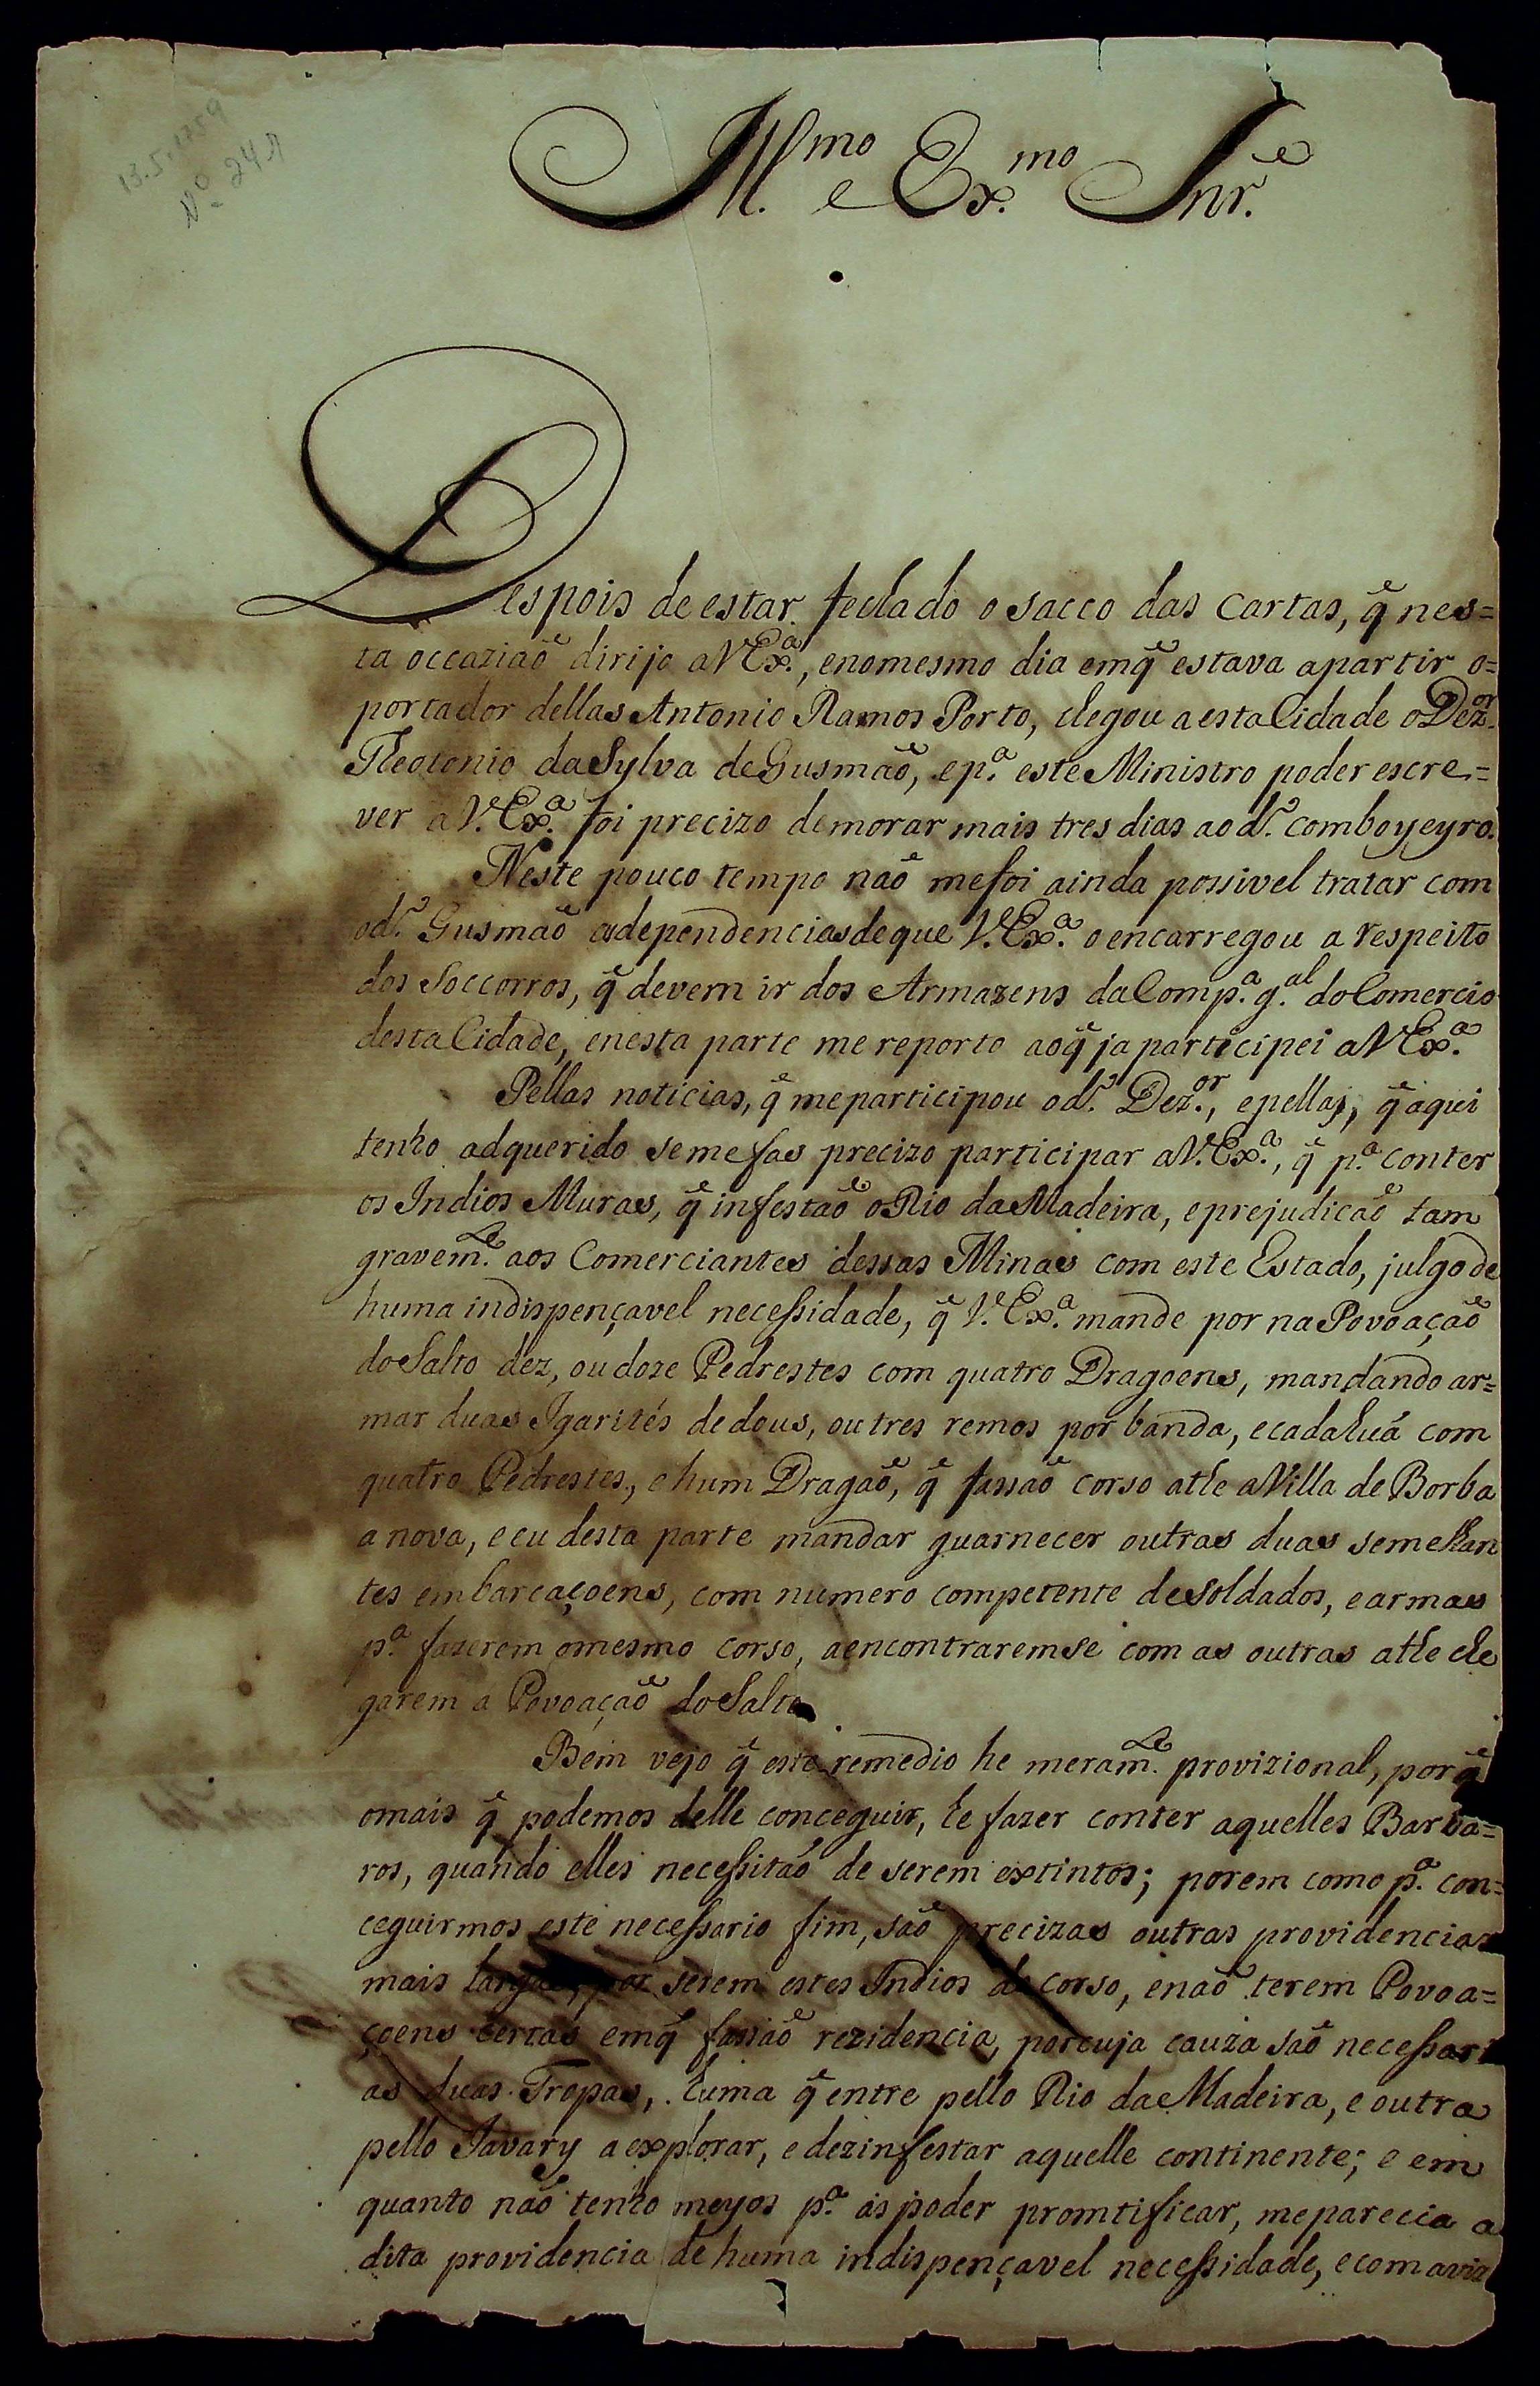 13.5.1759
Nº 241
Ill.mo e Ex.mo Snr.
Despois de estar fechado o sacco das cartas, q̃ nes=
ta occazião dirijo a V Ex.ª, enomesmo dia emq̃ estava apartir o=
portador dellas Antonio Ramos Porto, chegou a esta Cidade o Dez.or
Theotonio da Sylva de Gusmão, ep.ª este Ministro poder escre=
ver a V. Ex.ª foi precizo demorar mais tres dias ao d.º comboyeyro.
Neste pouco tempo não mefoi ainda possivel tratar com
od.º Gusmão as dependencias deque V. Ex.ª o encarregou a respeito
dos Soccorros, q̃ devem ir dos Armazens da Comp.ª g.al do Comercio
desta Cidade, enesta parte me reporto aoq̃ ja participei a V Ex.ª
Pellas noticias, q̃ meparticipou od.º Dez.or, epellas, q̃ aqui
tenho adquerido semefas precizo participar a V. Ex.ª, q̃ p.ª conter
os Indios Muras, q̃ infestão o Rio da Madeira, eprejudicão tam
gravem.te aos Comerciantes dessas Minas com este Estado, julgo de
huma indispençavel necessidade, q̃ V. Ex.ª mande por na Povoação
do Salto dez, ou doze Pedrestes com quatro Dragoens, mandando ar=
mar duas Igarités dedous, ou tres remos por banda, ecada huã com
quatro Pedrestes, e hum Dragão, q̃ fassão corso athe a Villa de Borba
a nova, e eu desta parte mandar guarnecer outras duas semelhan
tes embarcaçoens, com numero competente de soldados, earmas
p.ª fazerem omesmo corso, aencontraremse com as outras athe che
garem a Povoação do Salto
Bem vejo q̃ este remedio he meram.te provizional, porq̃
omais q̃ podemos delle conceguir, he fazer conter aquelles Barba=
ros, quando elles necessitão de serem extintos; porem como p.ª con=
ceguirmos este necessario fim, são precizas outras providencias
mais largas, por serem estes Indios de corso, enão terem Povoa=
çoens certas emq̃ fassão rezidencia, porcuja cauza são necessari
as duas Tropas, huma q̃ entre pello Rio da Madeira, e outra
pello Javary a explorar, e dezinfestar aquelle continente; e em
quanto não tenho meyos p.ª as poder promtificar, meparecia a
dita providencia de huma indispençavel necessidade, ecom aviz